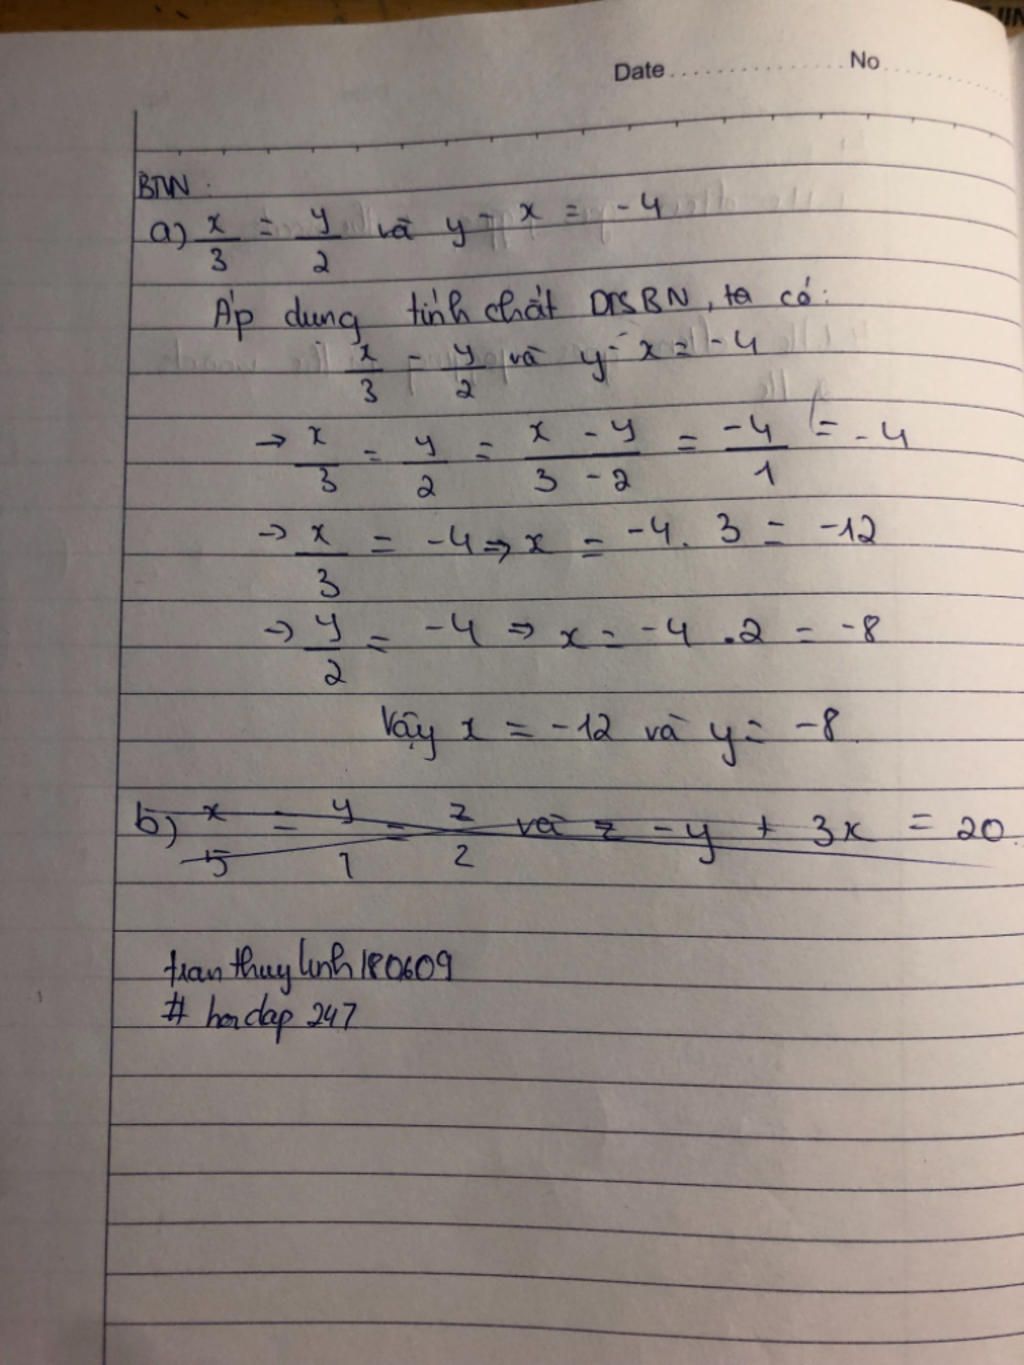 Date No
BTVN:
a) x/3 = y/2 và y - x = -4
Áp dụng tính chất DTSBN, ta có:
x/3 = y/2 và y - x = -4
→ x/3 = y/2 = x - y/3 - 2 = -4/1 = -4
→ x/3 = -4 ⇒ x = -4. 3 = -12
→ y/2 = -4 ⇒ x = -4 .2 = -8
Vậy x = -12 và y = -8.
b) x/5 = y/1 = z/2 và z - y + 3x = 20.
tran thuy linh 180609
# hoidap 247